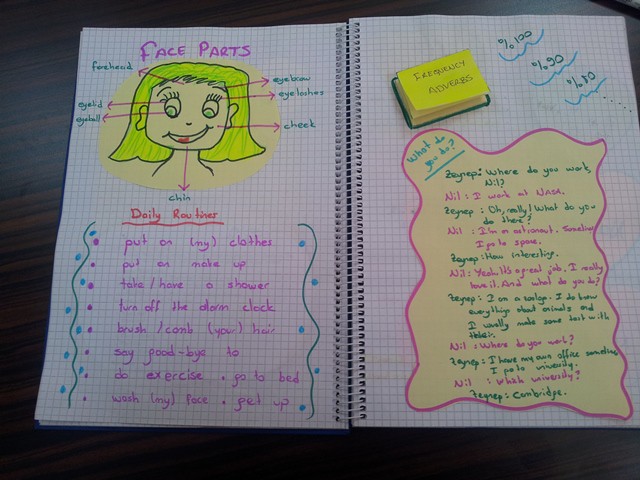 FACE PARTS
forehead
eyebrow
eyelashes
eyelid
eyeball
cheek
chin
Daily Routines
put on (my) clothes
put on make up
take / have a shower
turn off the alarm clock
brush / comb (your) hair
say good-bye to
do exercise • go to bed
wash (my) face • get up
FREQUENCY
ADVERBS
%100
%90
%80
What do
you do?
Zeynep: Where do you work,
Nil?
Nil: I work at NASA.
Zeynep: Oh, really! What do you
do there?
Nil: I'm an astronaut. Sometimes
I go to space.
Zeynep: How interesting.
Nil: Yeah. It's a great job. I really
love it. And what do you do?
Zeynep: I am a I do know
everything about animals and
I usually make some with
Nil: Where do you work?
Zeynep: I have my own office sometimes
I go to university.
Nil: Which university?
Zeynep: Cambridge.